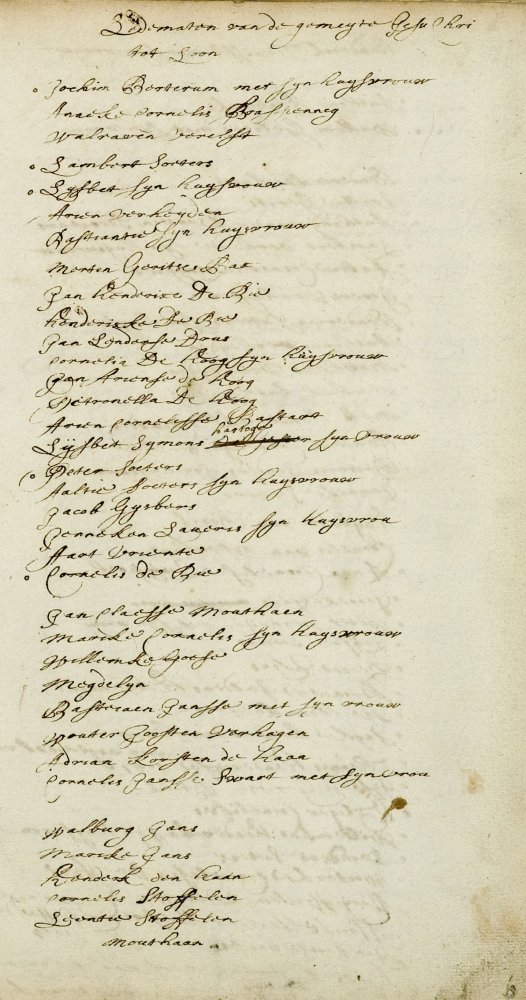 Ledematen van de gemeynte Jesu Chri
tot Loon
Jochim Berteram met syn huysvrouw
Anneke Cornelis
Walraven Verelst
Lambert Soeters
Lysbet syn huysvrouw
Arien Verheyden
Bastiantie syn huysvrouw
Mertin Geritse Bac
Jan Henderice De Bie
Henderickske De Bie
Jan Lenderse Drus
Cornelia De Hoog syn huysvrouw
Jan Ariense de Hoog
Pitronella De Hoog
Arien Cornelisse Bastart
Lysbet Symons syn vrouw
Peter Soeters
Aaltie Soeters syn huysvrouw
Jacob Gysbers
Jenneken Lauerss syn huysvrou
Aart Vriente
Cornelis de Bie
Jan Claesse Mouthaen
Marike Cornelis syn huysvrouw
Willemke Goese
Megdelyn
Bastiaen Jansse met syn vrouw
Wouter Joosten Verhagen
Adrian Korsten de Haan
Cornelis Jansse Swart met syn vrou
Walburg Jans
Marike Jans
Henderk den Haan
Cornelis Stoffelen
Leentie Stoffelen
Mouthaan